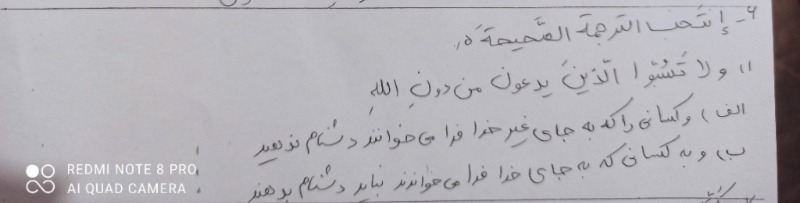 ۶- إنتَخب الترجمة الصَّحيحَةَ.
۱) و لا تَسُبّوا الّذينَ يدعون من دونِ اللهِ
الف) و کسانی را که به جای غیر خدا فرا می خوانند دشنام ندهید
ب) و به کسانی که به جای خدا فرا می خوانند نباید دشنام بدهند
REDMI NOTE 8 PRO
AI QUAD CAMERA